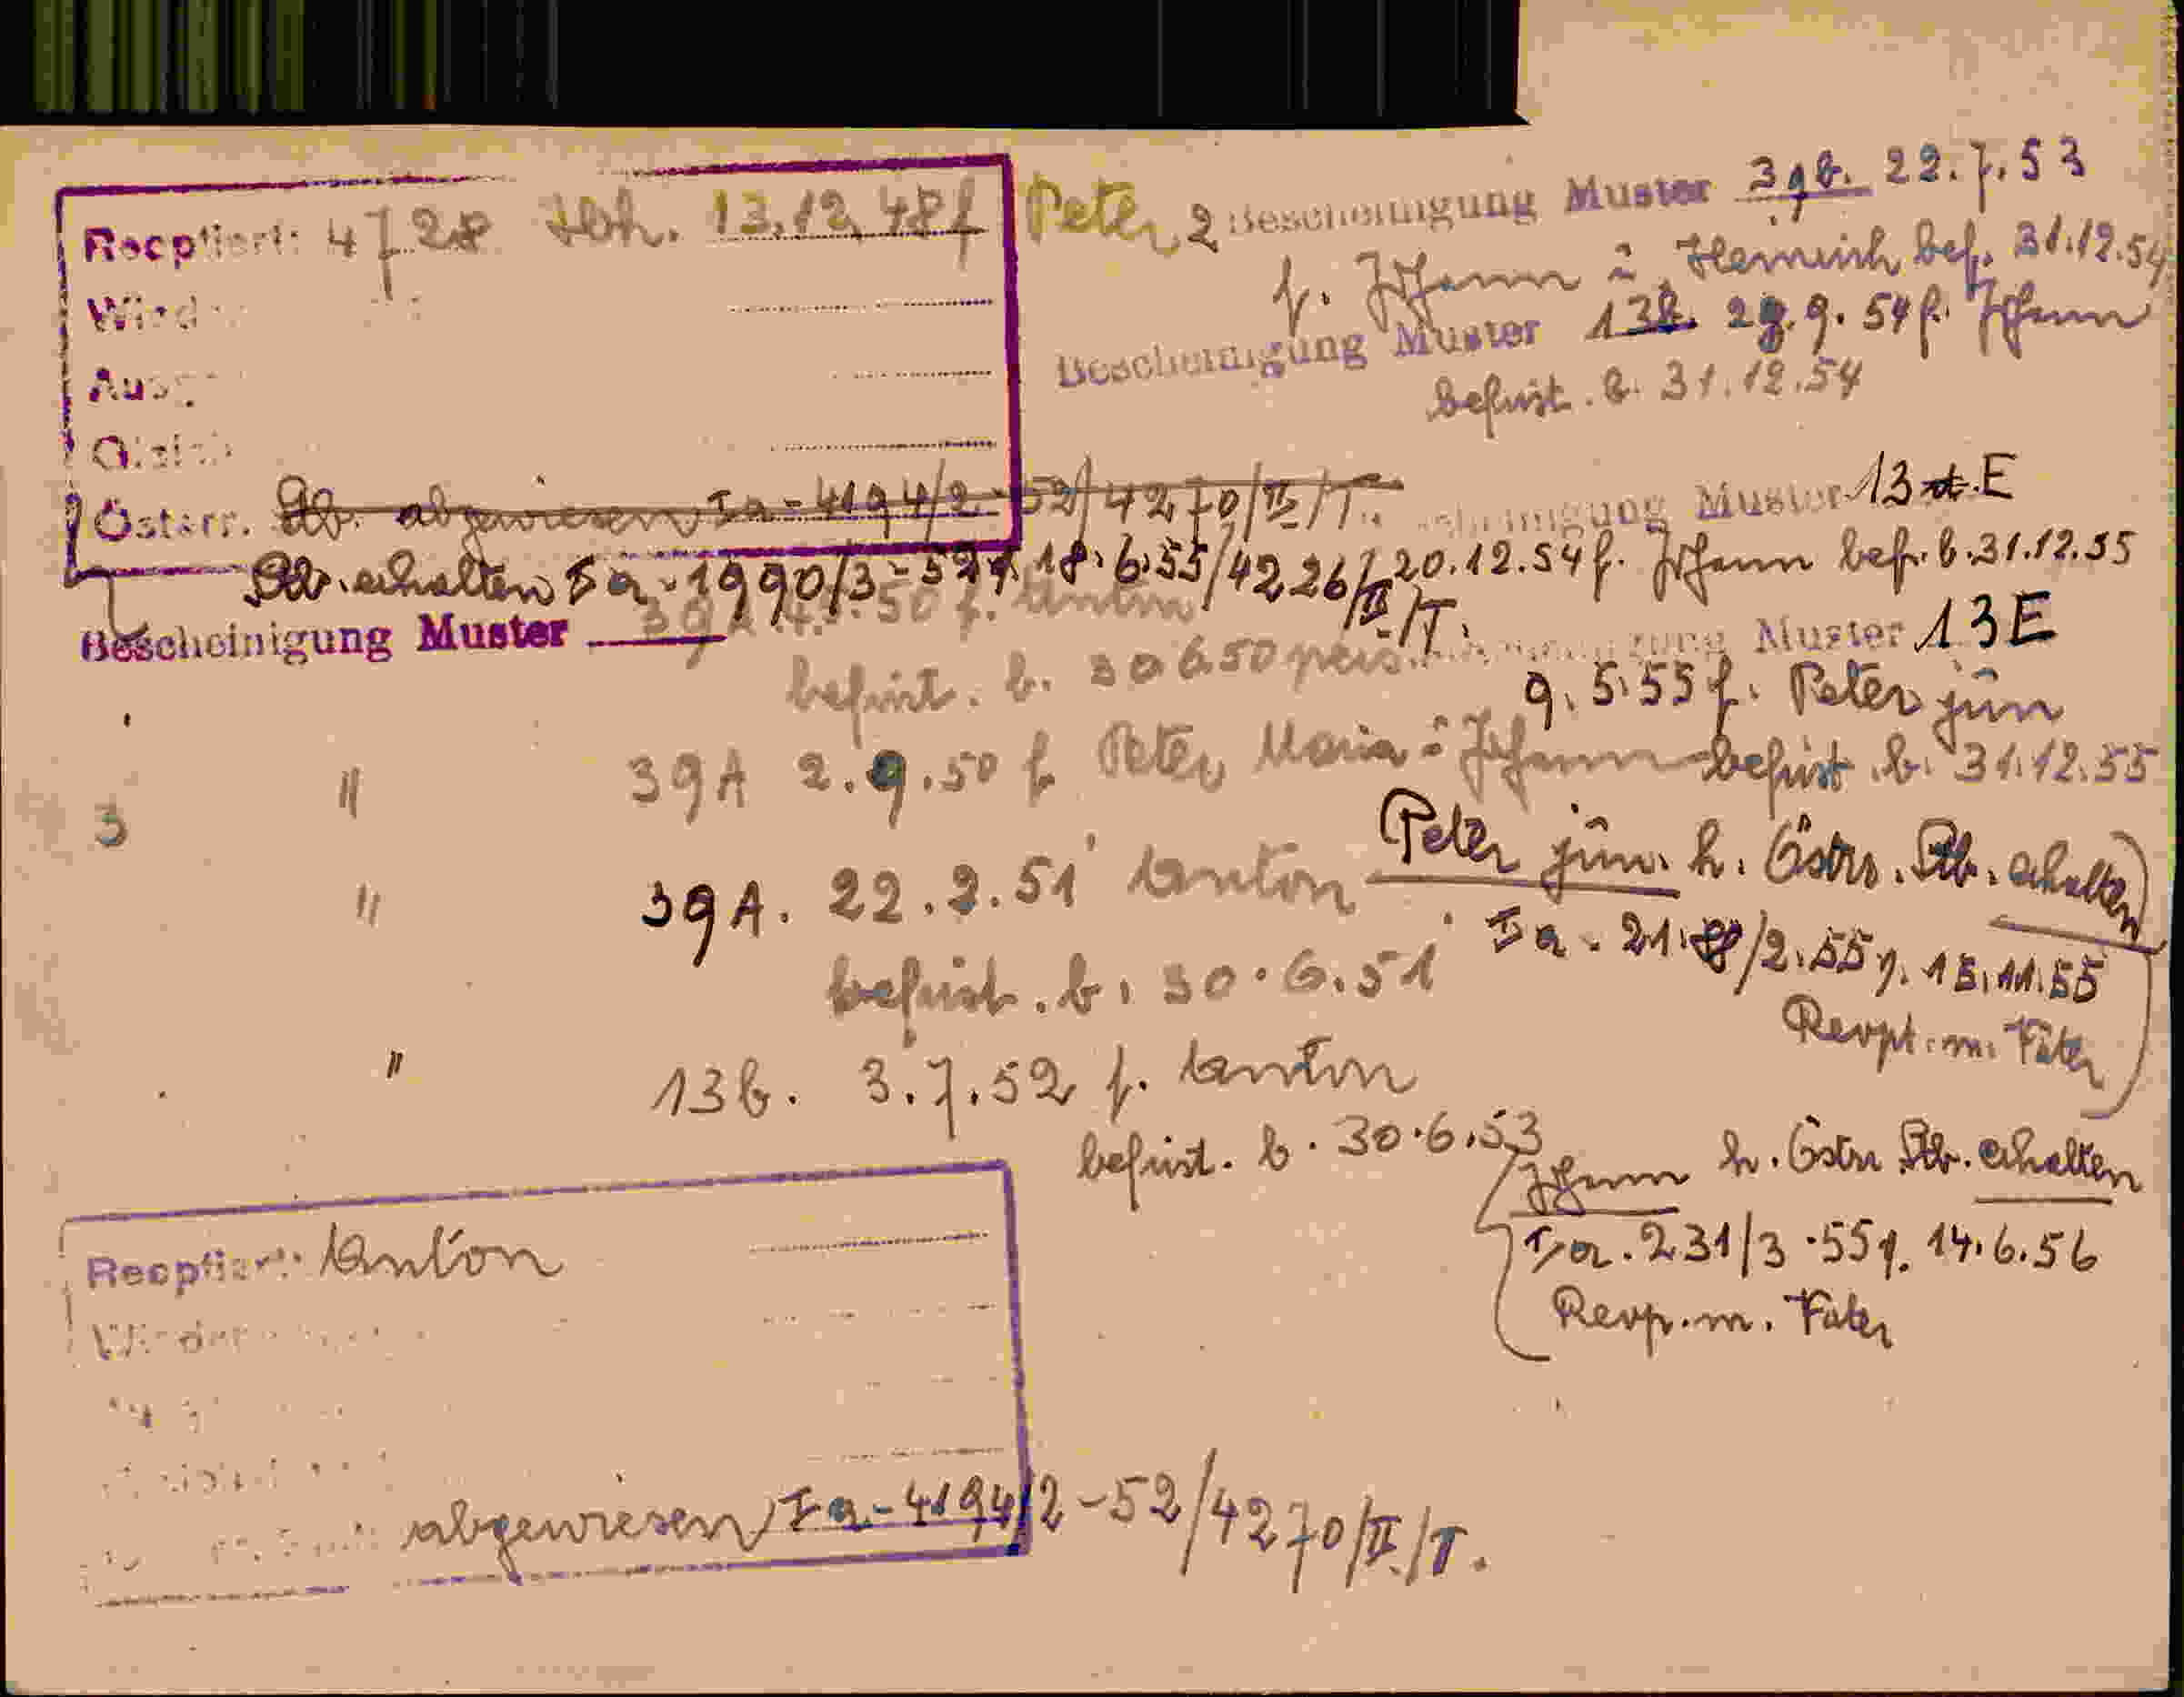 Reoptiert: 4728 Ibh. 13.12.48 f Peter
Wied
Ausg
Gleich
Österr. Stb. abgewiesen Ia-4194/2-52/4270/II/T.
Stb. erhalten Ia-1990/3-52 v. 18.6.55/4226/II/T.
Bescheinigung Muster 39A 50 f. Anton
befrist. b. 30 6.50
3 " 39A 2.9.50 f. Peter Maria u Johann
" 39A. 22.2.51 Anton
befrist. b. 30.6.51
" 13b. 3.7.52 f. Anton
befrist. b. 30.6.53
2 Bescheinigung Muster 39b. 22.7.53
f. Johann u. Heinrich bef. 31.12.54
Bescheinigung Muster 13b. 28.9.54 f. Johann
befrist. b. 31.12.54
Muster 13 E
20.12.54 f. Johann bef. b. 31.12.55
Muster 13E
9.5.55 f. Peter jun
befrist. b. 31.12.55
Peter jun. h. Östr. Stb. erhalten
Ia. 21.88/2.55 v. 15.11.55
Reopt. m. Vater
Johann h. Östr Stb. erhalten
Ia. 231/3.55 v. 14.6.56
Reop. m. Vater
Reoptiert: Anton
Wieder
abgewiesen Ia-4194/2-52/4270/II/T.